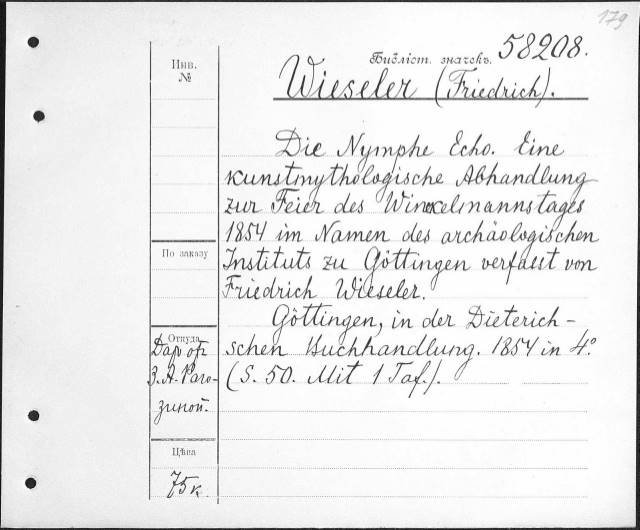 179
Библіот. значекъ. 58208.
Инв. №
Wieseler (Friedrich).
Die Nymphe Echo. Eine
kunstmythologische Abhandlung
zur Feier des Winckelmannstages
1854 im Namen des archäologischen
Instituts zu Göttingen verfasst von
Friedrich Wieseler.
Göttingen, in der Dieterich-
schen Buchhandlung. 1854 in 4º.
(S. 50. Mit 1 Taf.).
По заказу
Откуда
Даръ отъ
З. А. Раго-
зиной.
Цѣна
75 к.